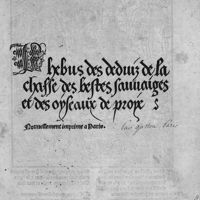 Phebus des deduiz de la
chasse des bestes sauuaiges
et des oyseaux de proye
Nouuellement imprime a Paris.
par gaston